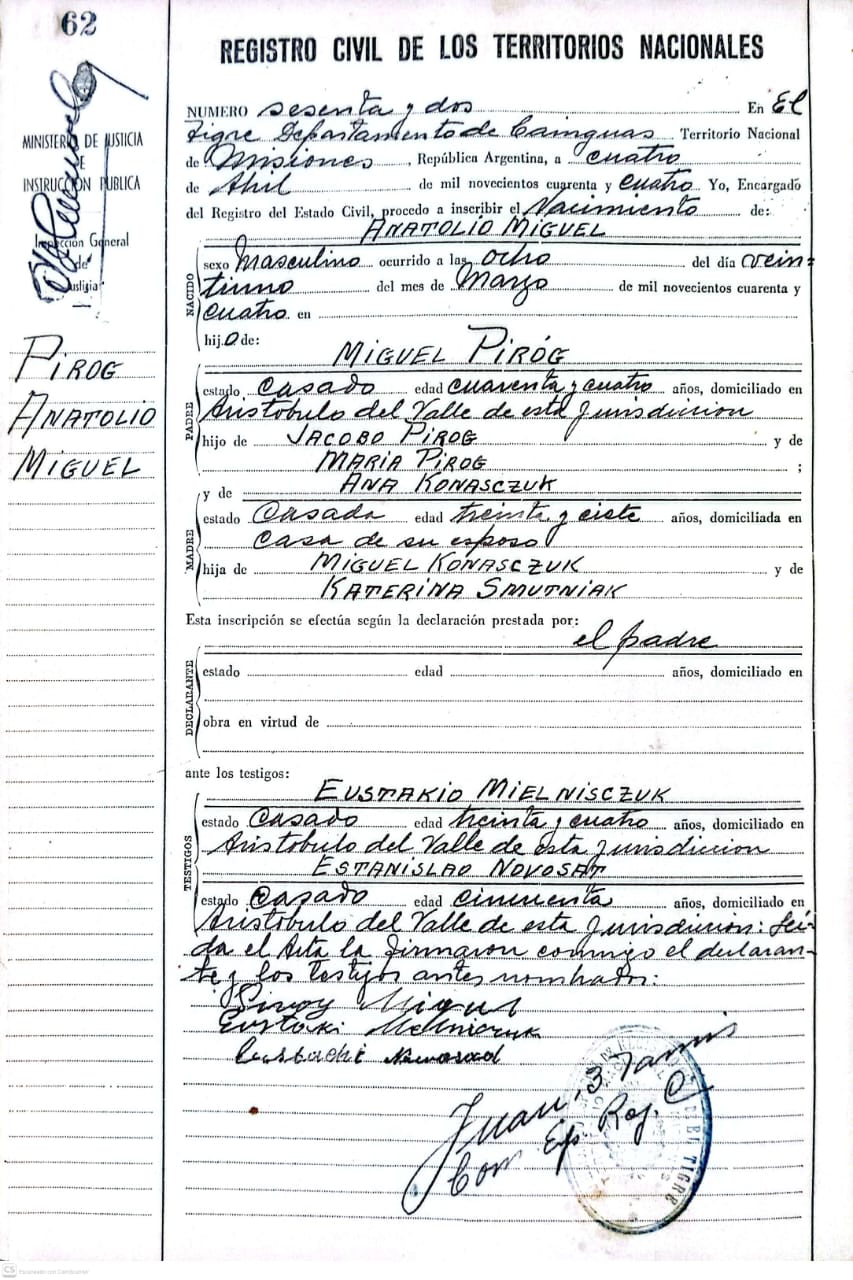 62
REGISTRO CIVIL DE LOS TERRITORIOS NACIONALES
MINISTERIO DE JUSTICIA
E
INSTRUCCIÓN PUBLICA
Inspección General
de
Justicia
PIROG
ANATOLIO
MIGUEL
NUMERO sesenta y dos En El
Tigre Departamento de Cainguas Territorio Nacional
de Misiones, República Argentina, a cuatro
de Abril de mil novecientos cuarenta y cuatro Yo, Encargado
del Registro del Estado Civil, procedo a inscribir el Nacimiento de:
ANATOLIO MIGUEL
NACIDO
sexo Masculino ocurrido a las ocho del día vein=
tiuno del mes de Marzo de mil novecientos cuarenta y
cuatro en
hijo de:
MIGUEL PIRÓG
PADRE
estado Casado edad cuarenta y cuatro años, domiciliado en
Aristobulo del Valle de esta Jurisdicion
hijo de JACOBO PIROG y de
MARIA PIROG ;
y de ANA KONASCZUK
MADRE
estado Casada edad treinta y ciete años, domiciliada en
casa de su esposo
hija de MIGUEL KONASCZUK y de
KATERINA SMUTNIAK
Esta inscripción se efectúa según la declaración prestada por:
el padre
DECLARANTE
estado edad años, domiciliado en
obra en virtud de
ante los testigos:
EUSTAKIO MIELNISCZUK
TESTIGOS
estado Casado edad treinta y cuatro años, domiciliado en
Aristobulo del Valle de esta Jurisdicion
ESTANISLAO NOVOSAT
estado Casado edad cincuenta años, domiciliado en
Aristobulo del Valle de esta Jurisdicion: Lei-
da el Acta la firmaron conmigo el declaran-
te y los testigos antes nombrados:
Pirog Migul
Eustaki
Juan B.
Enc. Reg. C
TIGRE
CS Escaneado con CamScanner